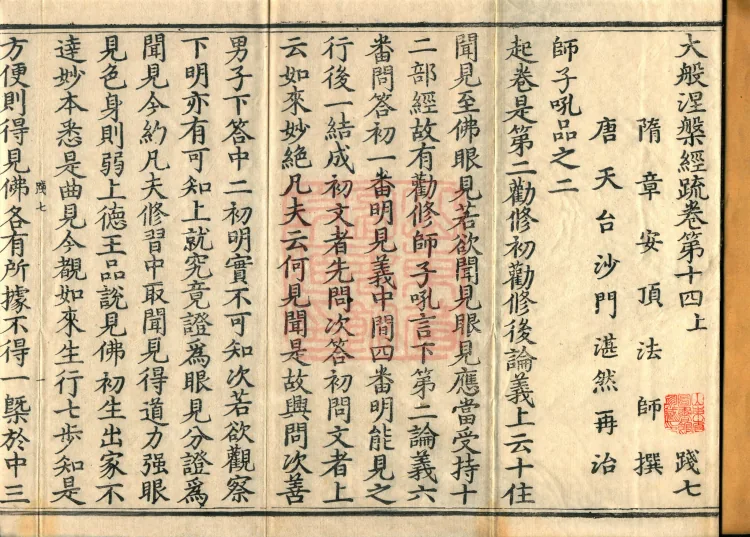 大般涅槃經疏卷第十四上 踐七
隋章安頂法師撰
唐天台沙門湛然再治
師子吼品之二
起卷是第二勸修初勸修後論義上云十住
聞見至佛眼見若欲聞見眼見應當受持十
二部經故有勸修師子吼言下第二論義六
番問答初一番明見義中間四番明能見之
行後一結成初文者先問次答初問文者上
云如來妙絶凡夫云何見聞是故興問次善
男子下答中二初明實不可知次若欲觀察
下明亦有可知上就究竟證爲眼見分證爲
聞見今約凡夫修習中取聞見得道力强眼
見色身則弱上德王品說見佛初生出家不
達妙本悉是曲見今觀如來生行七歩知是
踐七
一
方便則得見佛各有所據不得一槩於中三